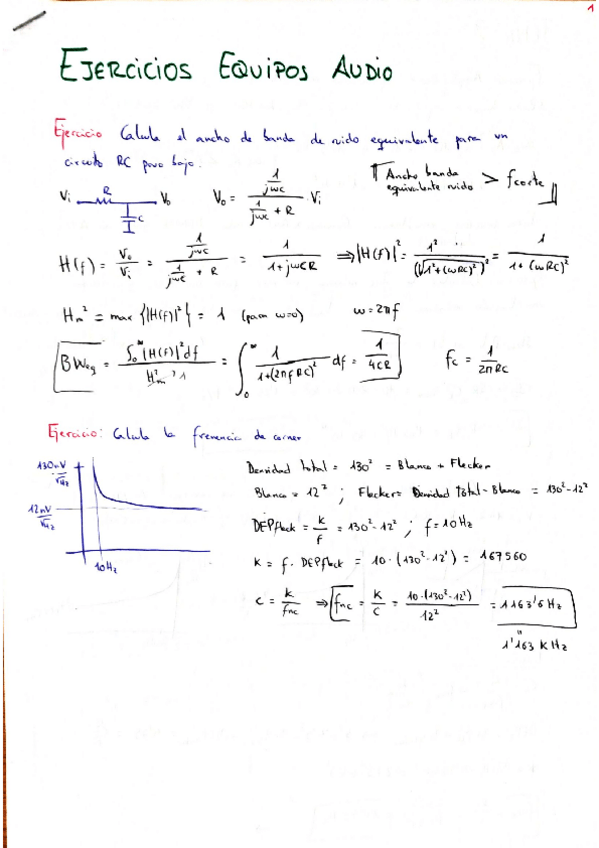 1
EJERCICIOS EQUIPOS AUDIO
Ejercicio Calcula el ancho de banda de ruido equivalente para un
circuito RC paso bajo.
Vi R Vo C
Vo = (1/jωc) / (1/jωc + R) · Vi
Ancho banda equivalente ruido > fcorte
H(f) = Vo/Vi = (1/jωc) / (1/jωc + R) = 1/(1+jωCR) ⇒ |H(f)|² = 1²/(√(1²+(ωRC)²))² = 1/(1+(ωRC)²)
Hm² = max {|H(f)|²} = 1 (para ω=0) ω=2πf
BWeq = ∫₀^∞ |H(f)|² df / Hm² = ∫₀^∞ 1/(1+(2πfRC)²) df = 1/4CR fc = 1/2πRC
Ejercicio: Calcula la frecuencia de corner
130nV/√Hz
12nV/√Hz
10Hz
Densidad total = 130² = Blanco + Flecker
Blanco = 12² ; Flecker = Densidad total - Blanco = 130²-12²
DEPflick = K/f = 130²-12² ; f=10Hz
K = f · DEPflick = 10·(130²-12²) = 167560
C = K/fnc ⇒ fnc = K/C = 10·(130²-12²)/12² = 1163'6 Hz
"
1'163 KHz